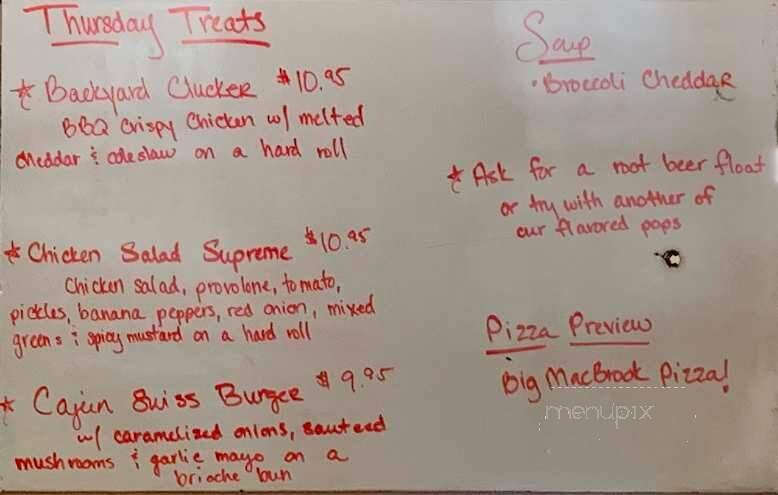 Thursday Treats
* Backyard Clucker $10.95
BBQ Crispy Chicken w/ melted
cheddar & coleslaw on a hard roll
* Chicken Salad Supreme $10.95
Chicken salad, provolone, tomato,
pickles, banana peppers, red onion, mixed
greens & spicy mustard on a hard roll
* Cajun Swiss Burger $9.95
w/ caramelized onions, sauteed
mushrooms & garlic mayo on a
brioche bun
Soup
• Broccoli Cheddar
* Ask for a root beer float
or try with another of
our flavored pops
Pizza Preview
Big MacBrook Pizza!
menupix